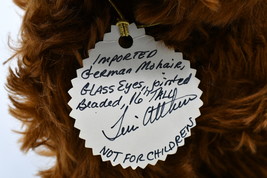 IMPORTED
German Mohair,
GLASS Eyes, jointed
Beaded, 16" TALL
NOT FOR CHILDREN